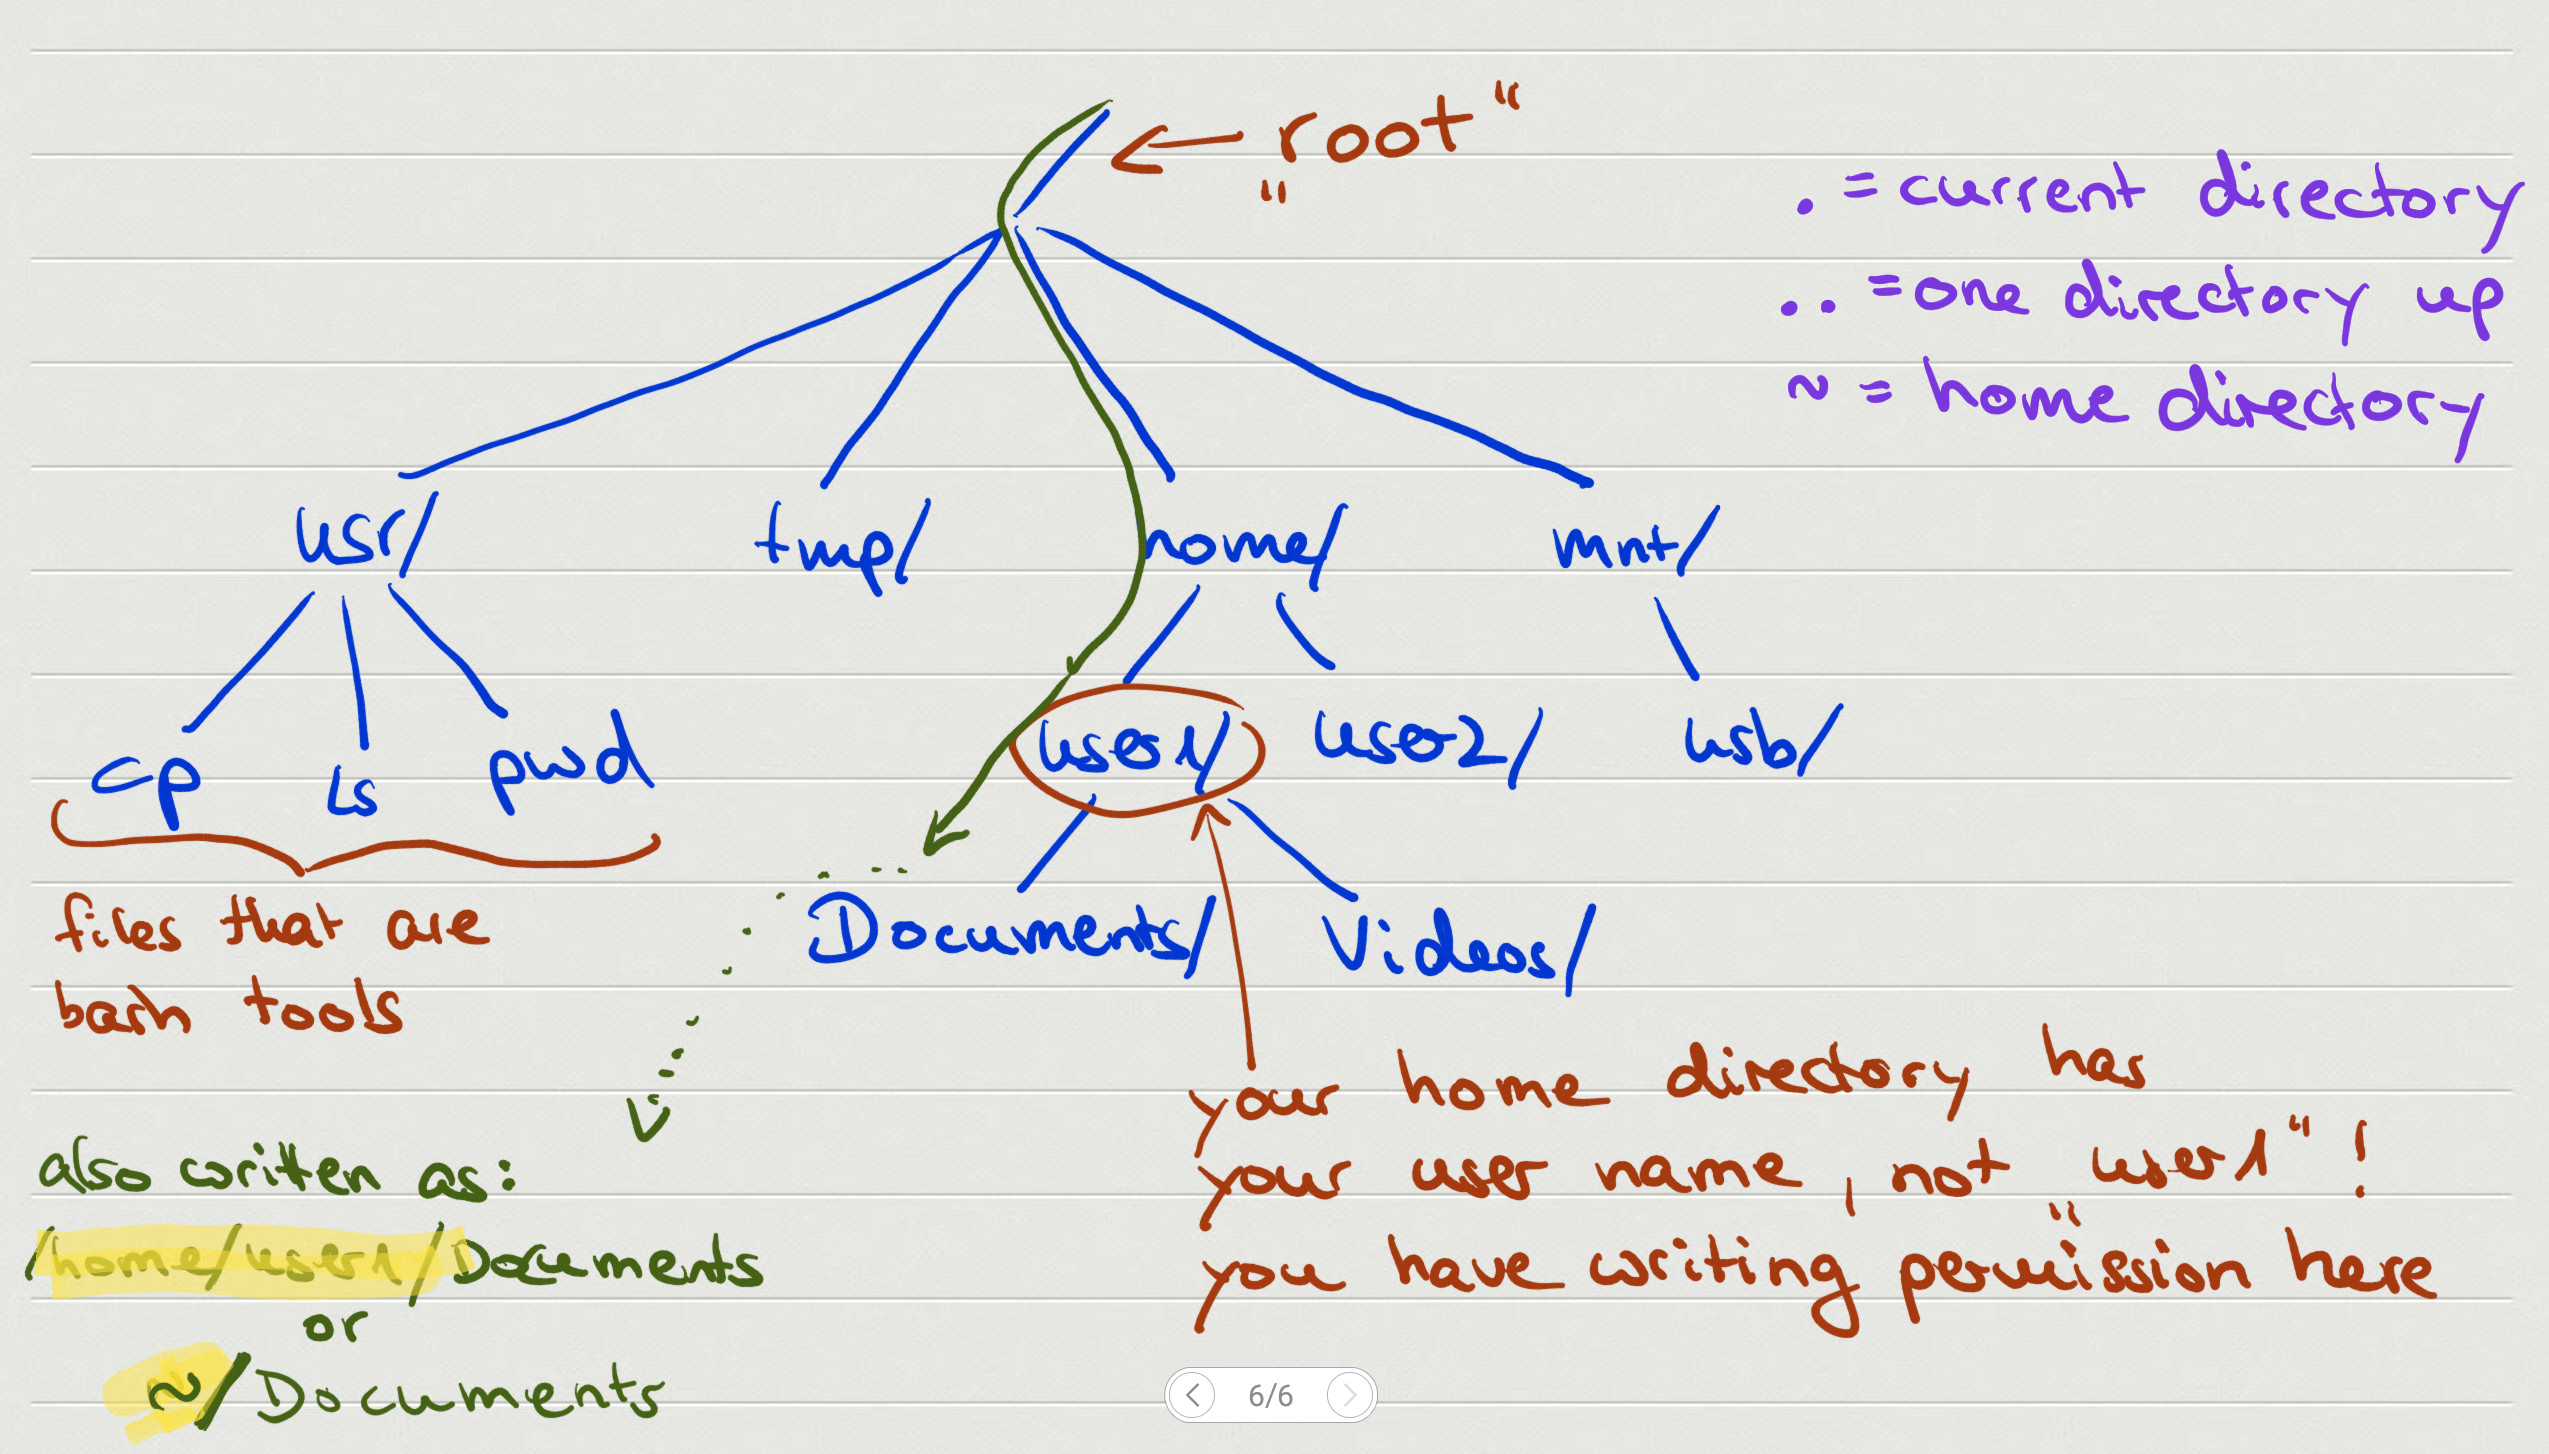 / ← „root“
. = current directory
.. = one directory up
~ = home directory
usr/ tmp/ home/ mnt/
cp ls pwd
user1/ user2/ usb/
Documents/ Videos/
files that are
bash tools
your home directory has
your user name, not „user1“!
you have writing permission here
also written as:
/home/user1/Documents
or
~/Documents
6/6